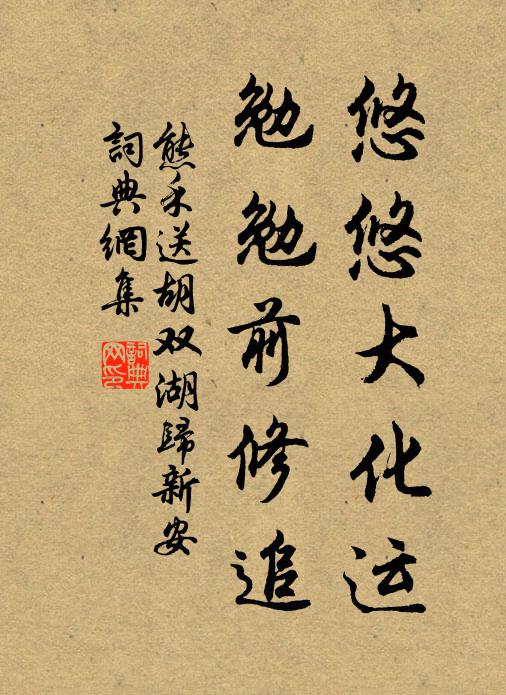 悠悠大化运
勉勉前修追
熊禾送胡双湖歸新安
詞典網集
詞典网印